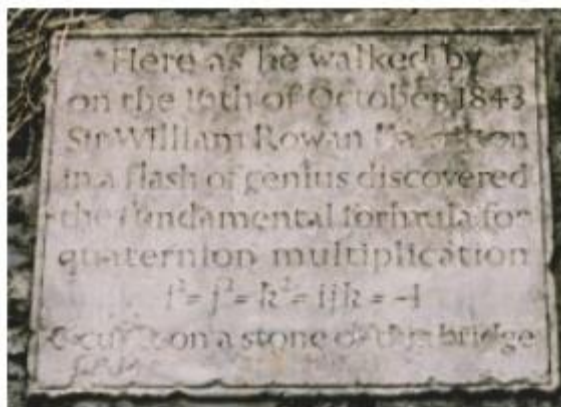 Here as he walked by
on the 16th of October 1843
Sir William Rowan Hamilton
in a flash of genius discovered
the fundamental formula for
quaternion multiplication
i² = j² = k² = ijk = -1
& cut it on a stone of this bridge